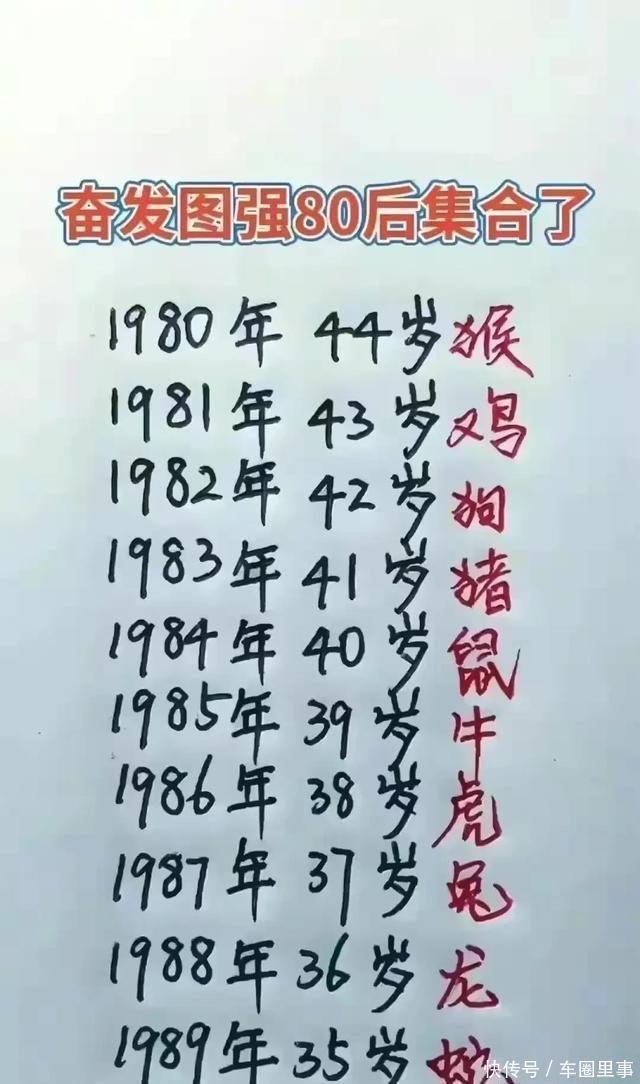 奋发图强80后集合了
1980年 44岁猴
1981年 43岁鸡
1982年 42岁狗
1983年 41岁猪
1984年 40岁鼠
1985年 39岁牛
1986年 38岁虎
1987年 37岁兔
1988年 36岁龙
1989年 35岁蛇
快传号／车圈里事